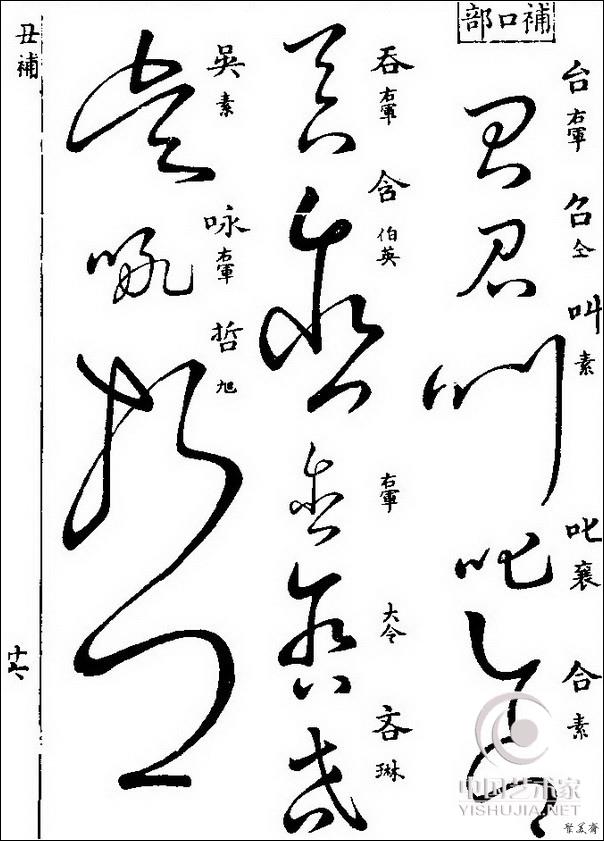 補口部
台 右軍
召 仝
叫 素
叱 襄
合 素
吞 右軍
含 伯英
右軍
大令
吝 琳
吳 素
咏 右軍
哲 旭
丑補
十六
中国艺术家
YISHUJIA.NET